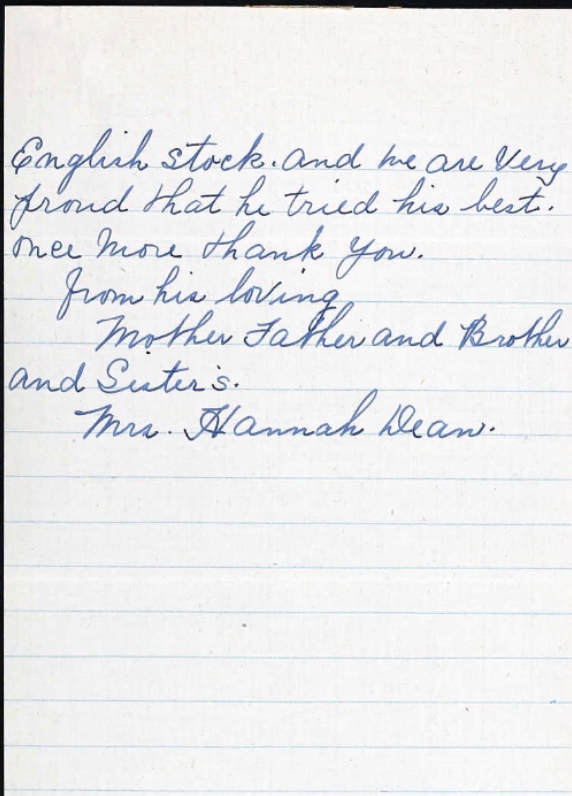 English stock. and we are Very
proud that he tried his best.
once More thank You.
from his loving
Mother Father and Brother
and Sister's.
Mrs. Hannah Dean.